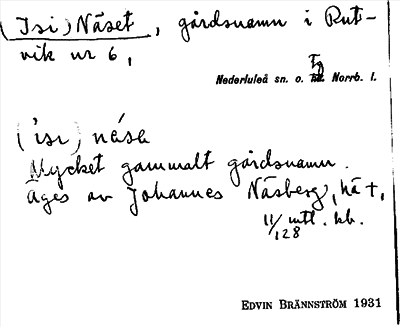 (Isi) Näset, gårdsnamn i Rut-
vik nr 6,
Nederluleå sn. o. Tg Norrb. l.
(ìsı) nǽsə
Mycket gammalt gårdsnamn.
Äges av Johannes Näsberg,
11/128 mtl. kb.
EDVIN BRÄNNSTRÖM 1931